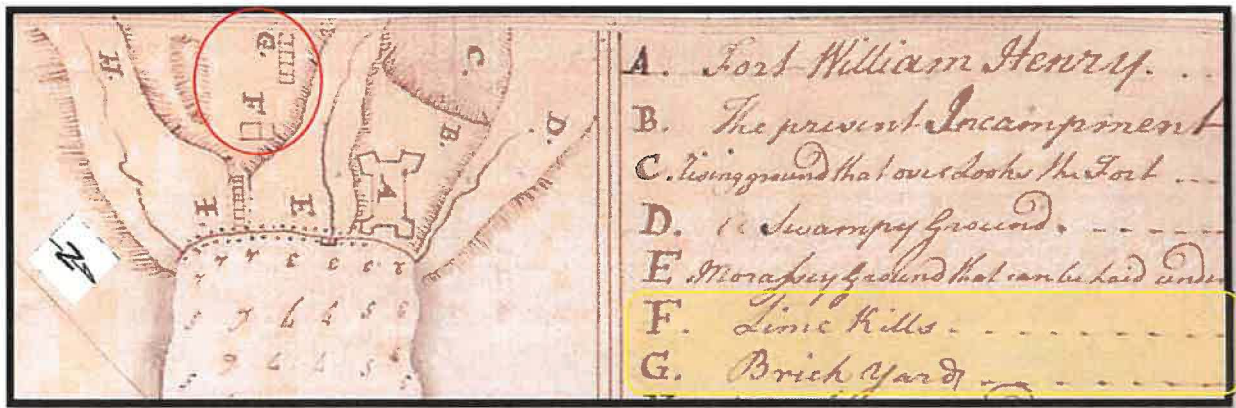 H.
G.
F
C.
B.
D.
A
E
E
N
A. Fort William Henry. . .
B. The present Incampment
C. rising ground that over Looks the Fort ...
D. a Swampy Ground. - - - - -
E Morassey Ground that can be Laid under
F. Lime Kills - - - - - - - - -
G. Brick Yard - - - - - - - -